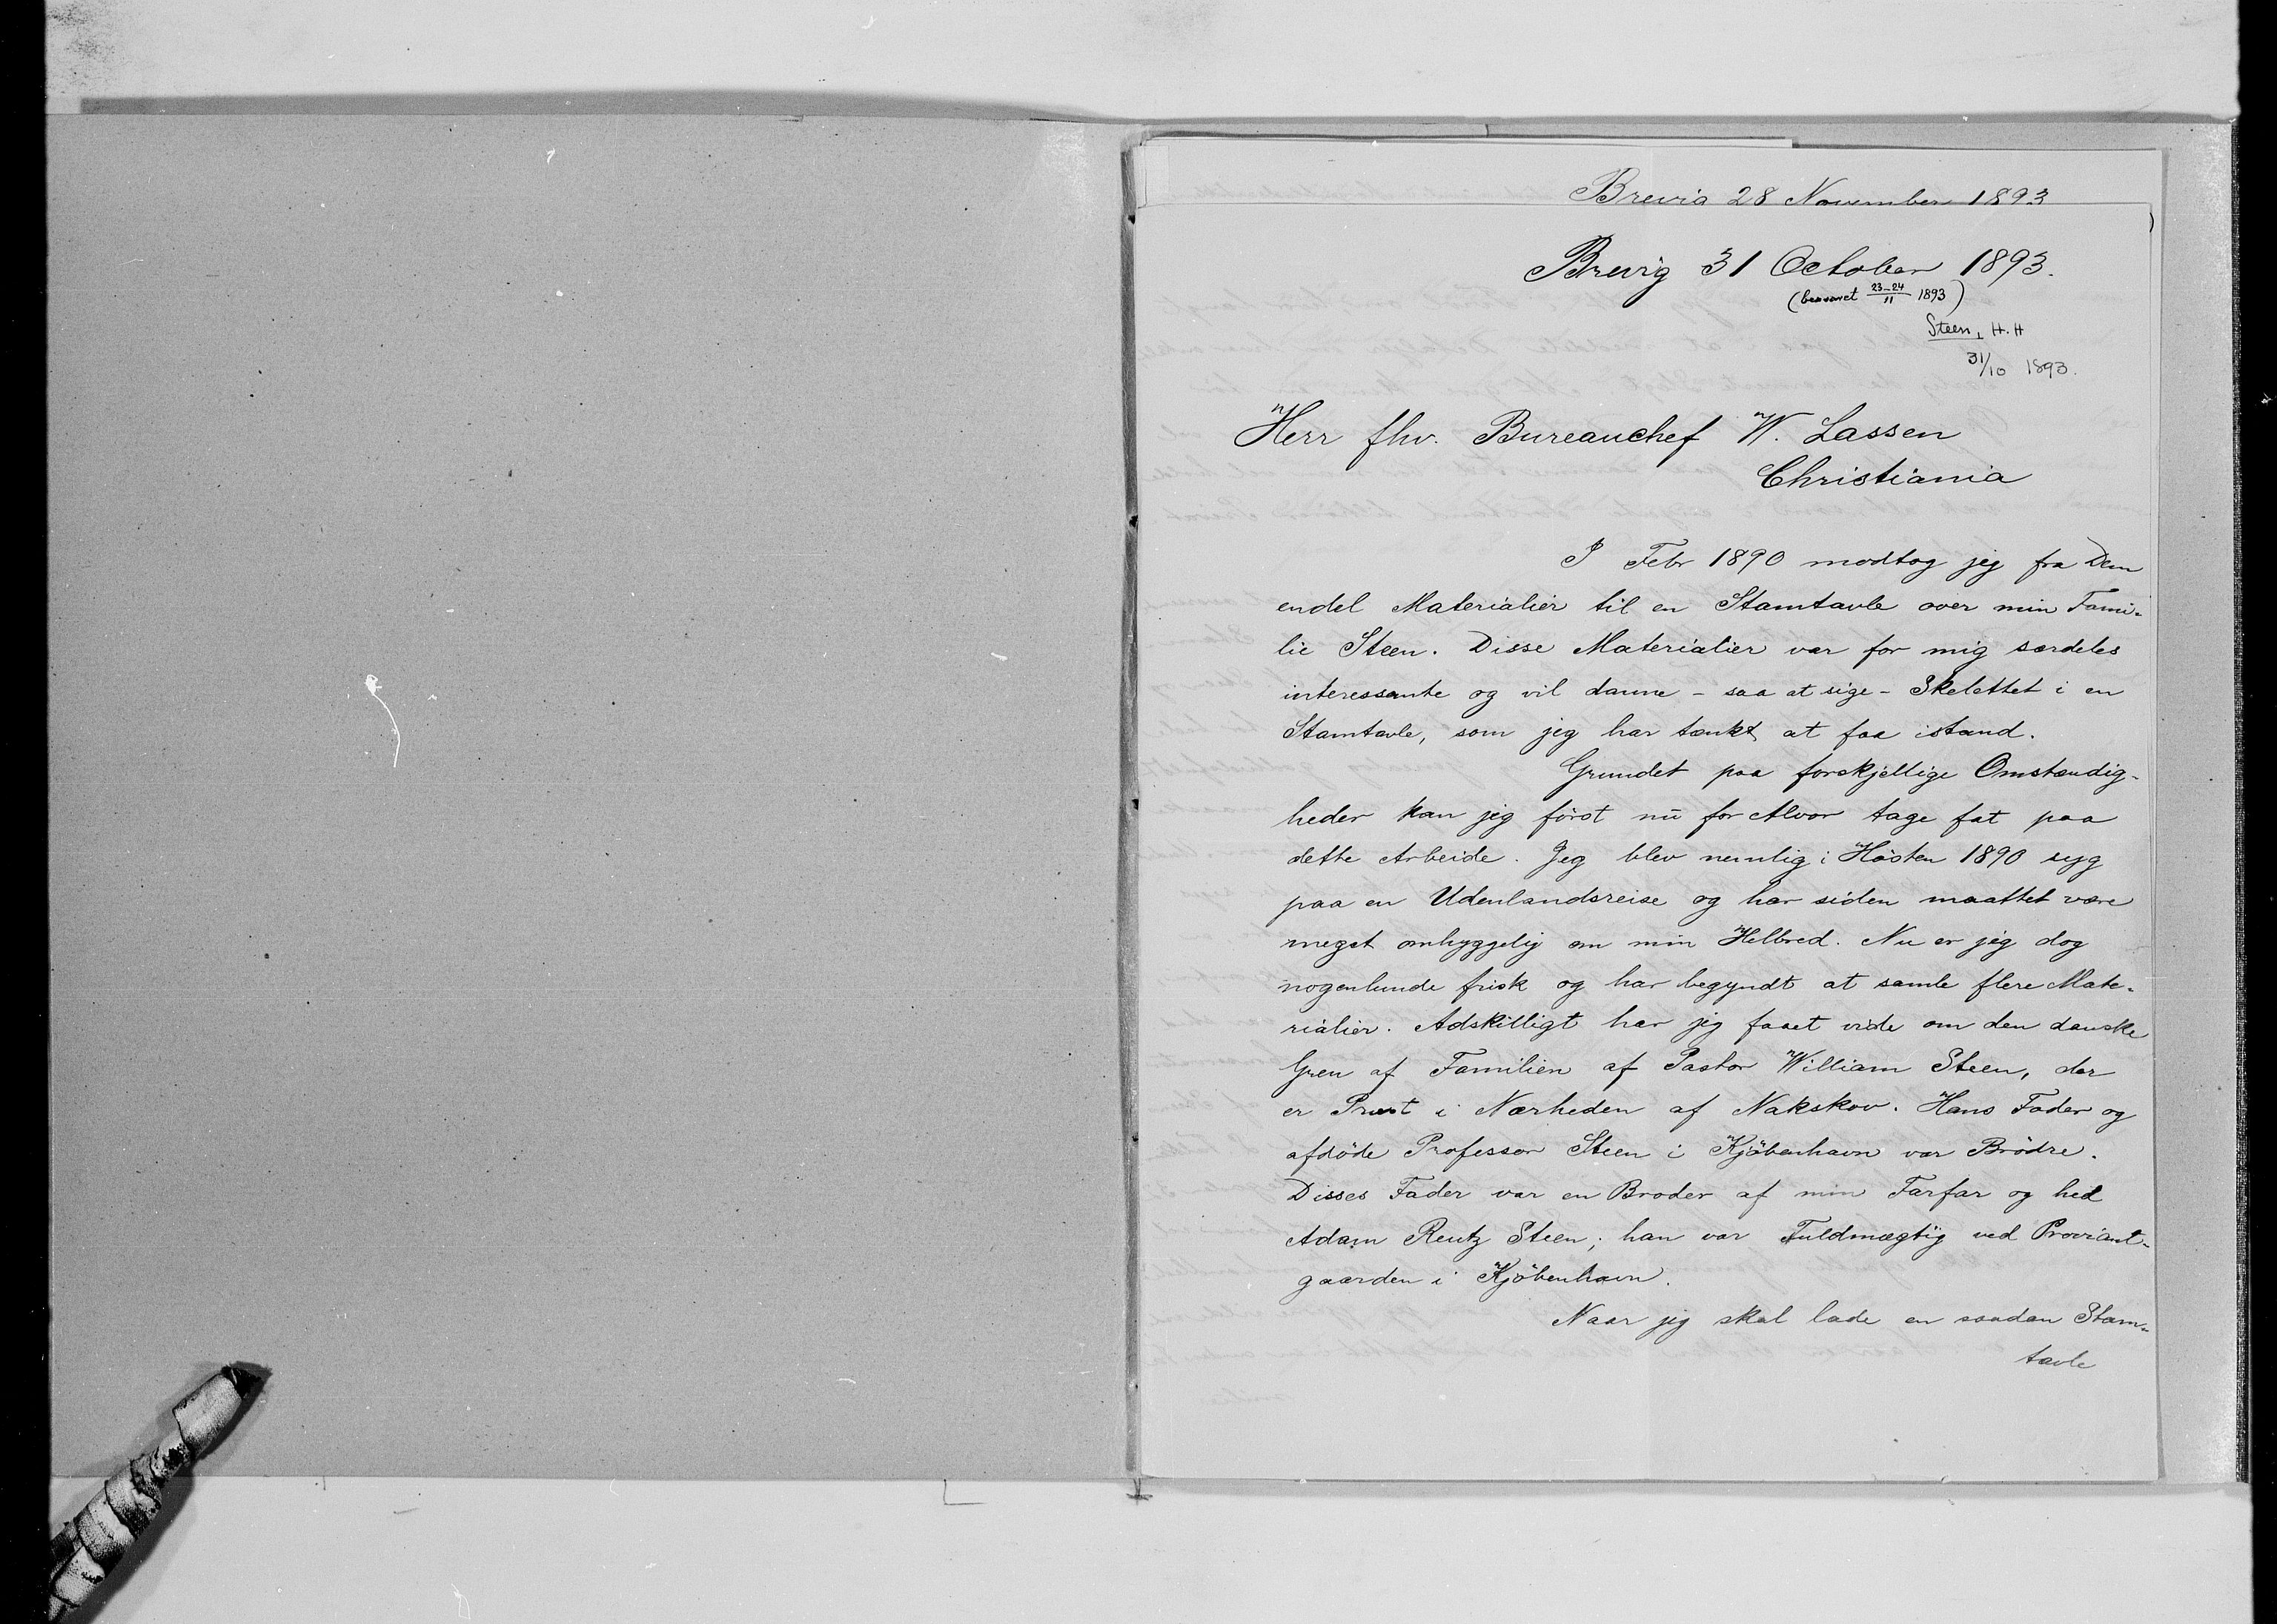 Brevig 28 November 1893
Brevig 31 October 1893.
(besvaret 23-24/11 1893)
Steen, H. H
31/10 1893.
Herr fhv. Bureauchef W. Lassen
Christiania
I Febr 1890 modtog jeg fra Dem
endel Materialier til en Stamtavle over min Fami-
lie Steen. Disse Materialier var for mig særdeles
interessante og vil danne - saa at sige - Skelettet i en
Stamtavle, som jeg har tænkt at faa istand.
Grundet paa forskjellige Omstændig-
heder kan jeg först nu for Alvor tage fat paa
dette Arbeide. Jeg blev nemlig i Hösten 1890 syg
paa en Udenlandsreise og har siden maattet være
meget omhyggelig om min Helbred. Nu er jeg dog
nogenlunde frisk og har begyndt at samle flere Mate-
rialier. Adskilligt har jeg faaet vide om den danske
Gren af Familien af Pastor William Steen, der
er Præst i Nærheden af Nakskov. Hans Fader og
afdöde Professor Steen i Kjöbenhavn var Brödre.
Disses Fader var en Broder af min Farfar og hed
Adam Reutz Steen; han var Fuldmægtig ved Proviant-
gaarden i Kjöbenhavn.
Naar jeg skal lade en saadan Stam-
tavle